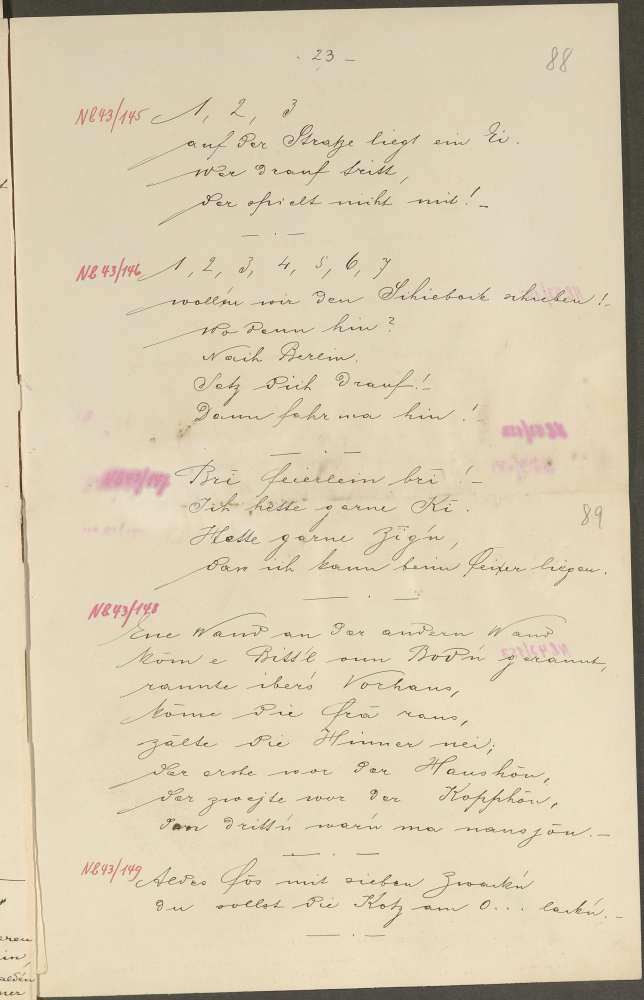 - 23 -
88
NE43/145 1, 2, 3
auf der Straße liegt ein Ei.
Wer drauf tritt,
der spielt nicht mit! -
NE43/146 1, 2, 3, 4, 5, 6, 7
wolln wir den Schiebock schieben! -
Wo denn hin?
Nach Berlin.
Setz dich drauf! -
Dann fahr ma hin! -
Bri feierlein bri! -
Ich hette garne Ki.
89
Hette garne Zīg'n,
dass ich kann beim feixer liegen.
NE43/148
Ene Wand an der andern Wand
kōm e Bitt'l vun Bod'n gerannt,
rannte ibersch Vorhaus,
kōme die Frā raus,
zälte die Hinner nei;
der erste wor der Haushōn,
der zwejte wor der Kopphōn,
den dritt'n war'n ma nausjōn. -
NE43/149 Aldes Fōs mit sieben Zwack'n
du sollst die Kotz am O... lack'n. -